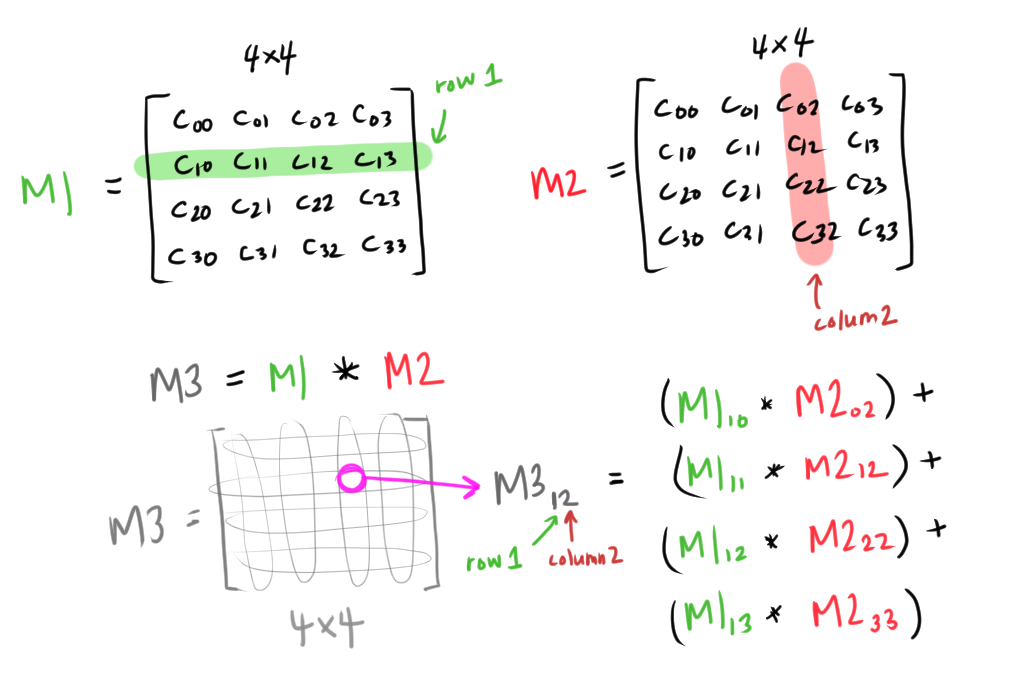 4×4
row 1
M1 =
C00 C01 C02 C03
C10 C11 C12 C13
C20 C21 C22 C23
C30 C31 C32 C33
4×4
M2 =
C00 C01 C02 C03
C10 C11 C12 C13
C20 C21 C22 C23
C30 C21 C32 C33
colum2
M3 = M1 * M2
M3 =
4×4
M3 12 =
row 1 column2
(M1 10 * M2 02) +
(M1 11 * M2 12) +
(M1 12 * M2 22) +
(M1 13 * M2 33)